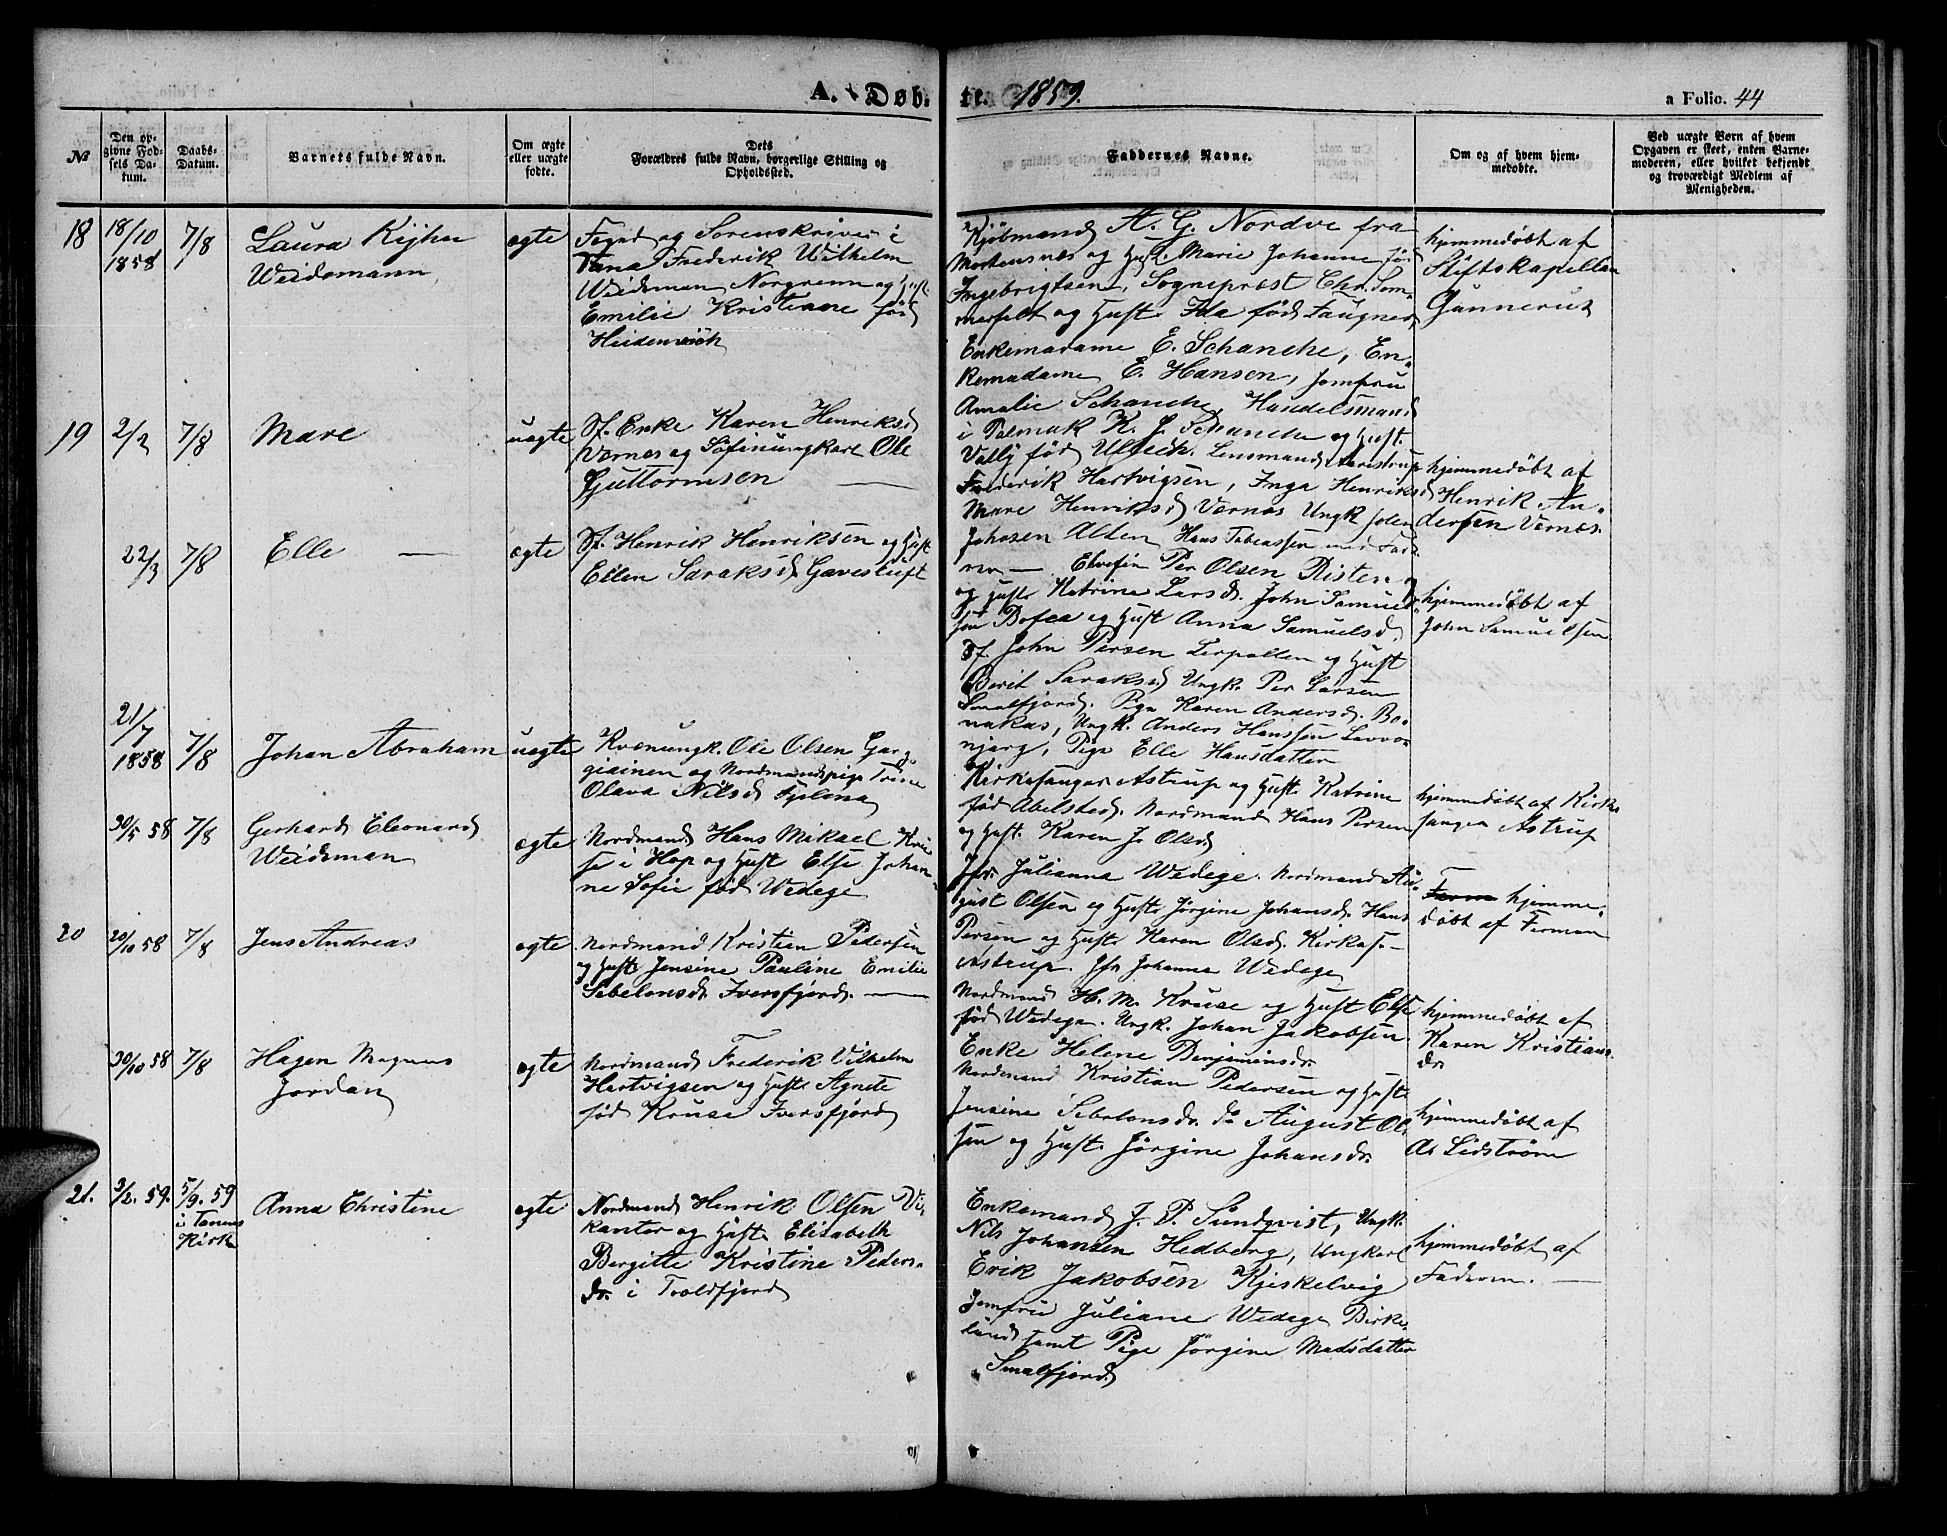 A. Døb- te. 1859. a Folio. 44
№
Den opgivne Fødsels Datum.
Daabs-Datum.
Barnets fulde Navn.
Om ægte eller uægte fødte.
Dets Forældres fulde Navn, borgerlige Stilling og Opholdssted.
Faddernes Navne.
Om og af hvem hjemmedøbte.
Ved uægte Børn af hvem Opgaven er skeet, enten Barnemoderen, eller hvilket bekjendt og troværdigt Medlem af Menigheden.
18
18/10
1858
7/8
Laura
Weidemann
ægte
Foged og Sorenskriver i
Tana Frederik Wilhelm
Weideman og Hust.
Emilie Kristiane født
Heidenreich
Kjøbmand A. G. Nordve fra
Mortensnæs og Hust. Marie Johanne fød
Ingebrigtsen, Sogneprest Chr. Som-
merfelt og Hust. Ida fød
Enkemadame E. Schanche, En-
kemadame E. Hansen, Jomfru
Amalie Schanche, Handelsmand
i Polmak K. J. Schanche og Hust.
Vally fød Ullrich. Lensmand
hjemmedøbt af
Stiftskapellan
Gunnerus
19
2/2
7/8
Mare
uægte
Sf. Enke Karen Henriksd
Vernæs og Søfinungkarl Ole
Guttormsen —
Frederik Hartvigsen, Inga Henriksd
Mare Henriksd Vernæs Ungk
Johnsen Alten Hans Tobiassen
hjemmedøbt af
Henrik An-
dersen Vernæs.
22/3
7/8
Elle —
ægte
Sf. Henrik Henriksen og Hust
Ellen Saraksd. Gavesluft
Elvefin Per Olsen Risten
og Hust. Katrina Larsd. John Samuel-
sen Bofca og Hust Anna Samuelsd.
Sf. John Persen Lerpollen og Hust
Berit Saraksd Ungk. Per Larsen
Smalfjord. Pige Karen Andersd. Bo-
nakas, Ungk. Anders Hanssen Lavvo-
njarg, Pige Elle Hansdatter
hjemmedøbt af
John Samuelsen
21/7
1858
7/8
Johan Abraham
uægte
Kvænungk. Ole Olsen
og Nordmandspige Trine
Olava Nilsd
Kirkesanger Astrup og Hust. Katrine
fød Abelsted. Nordmand Hans Persen
og Hust. Karen J. Olsd
hjemmedøbt af Kirke
sanger Astrup
30/5 58
7/8
Gerhard Eleonard
Weideman
ægte
Nordmand Hans Mikael Kru-
se i Hop og Hust Else Johan-
ne Sofie fød Wedege
Jfr. Julianna Wedege. Nordmand Au-
gust Olsen og Hust. Jørgine Johansd. Hans
Persen og Hust. Karen Olsd. Kirkes-
Astrup. Jfr Johanna Wedege
hjemme-
døbt af Ferman
20
20/10 58
7/8
Jens Andreas
ægte
Nordmand Kristian Pedersen
og Hust. Jensine Pauline Emilie
Sebelonsd. Iversfjord. —
Nordmand H. M. Kruse og Hust Else
fød Wedege. Ungk. Johan Jakobsen.
Enke Helene Benjaminsdr.
hjemmedøbt af
Karen Kristians
dr.
30/10 58
7/8
Hagen Magnus
Jordan
ægte
Nordmand Frederik Vilhelm
Hartvigsen og Hust. Agnete
fød Kruse Iversfjord
Nordmand Kristian Pedersen og Hust.
Jensine Sebelonsdr. do August Ol-
sen og Hust. Jørgine Johansdr.
hjemmedøbt af
A. Lidstrøm
21.
3/2. 59.
5/9. 59
i Tanens
Kirk
Anna Christine
ægte
Nordmand Henrik Olsen Vi-
kantor og Hust. Elisabeth
Bergitte Kristine Peders-
dr. i Troldfjord
Enkemand J. P. Sundqvist, Ungk.
Nils Johansen Hedberg, Ungkarl
Erik Jakobsen Kjeskelvig
Jomfru Juliane Wedege Birke-
lund samt Pige Jørgine Madsdatter
Smalfjord
hjemmedøbt af
Faderen. —